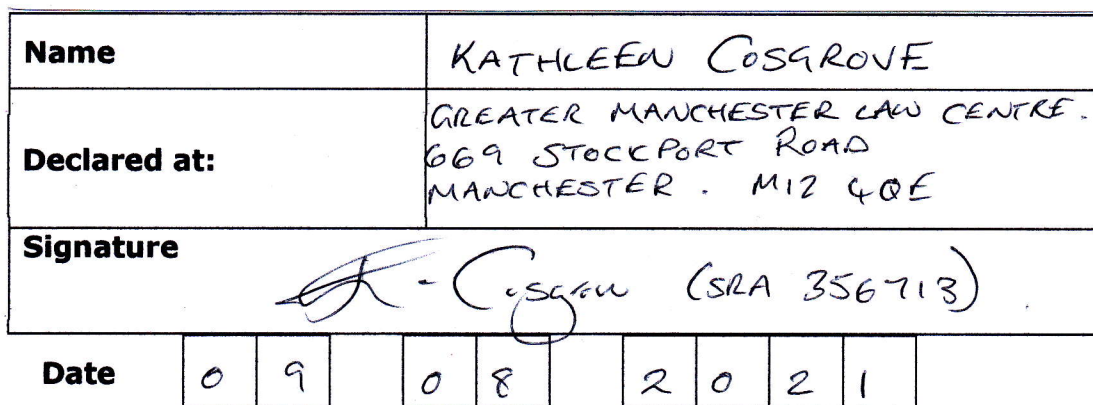 Name KATHLEEN COSGROVE
GREATER MANCHESTER LAW CENTRE.
Declared at: 669 STOCKPORT ROAD
MANCHESTER. M12 4QE
Signature
K. Cosgrove (SRA 356713)
Date 09 08 2021